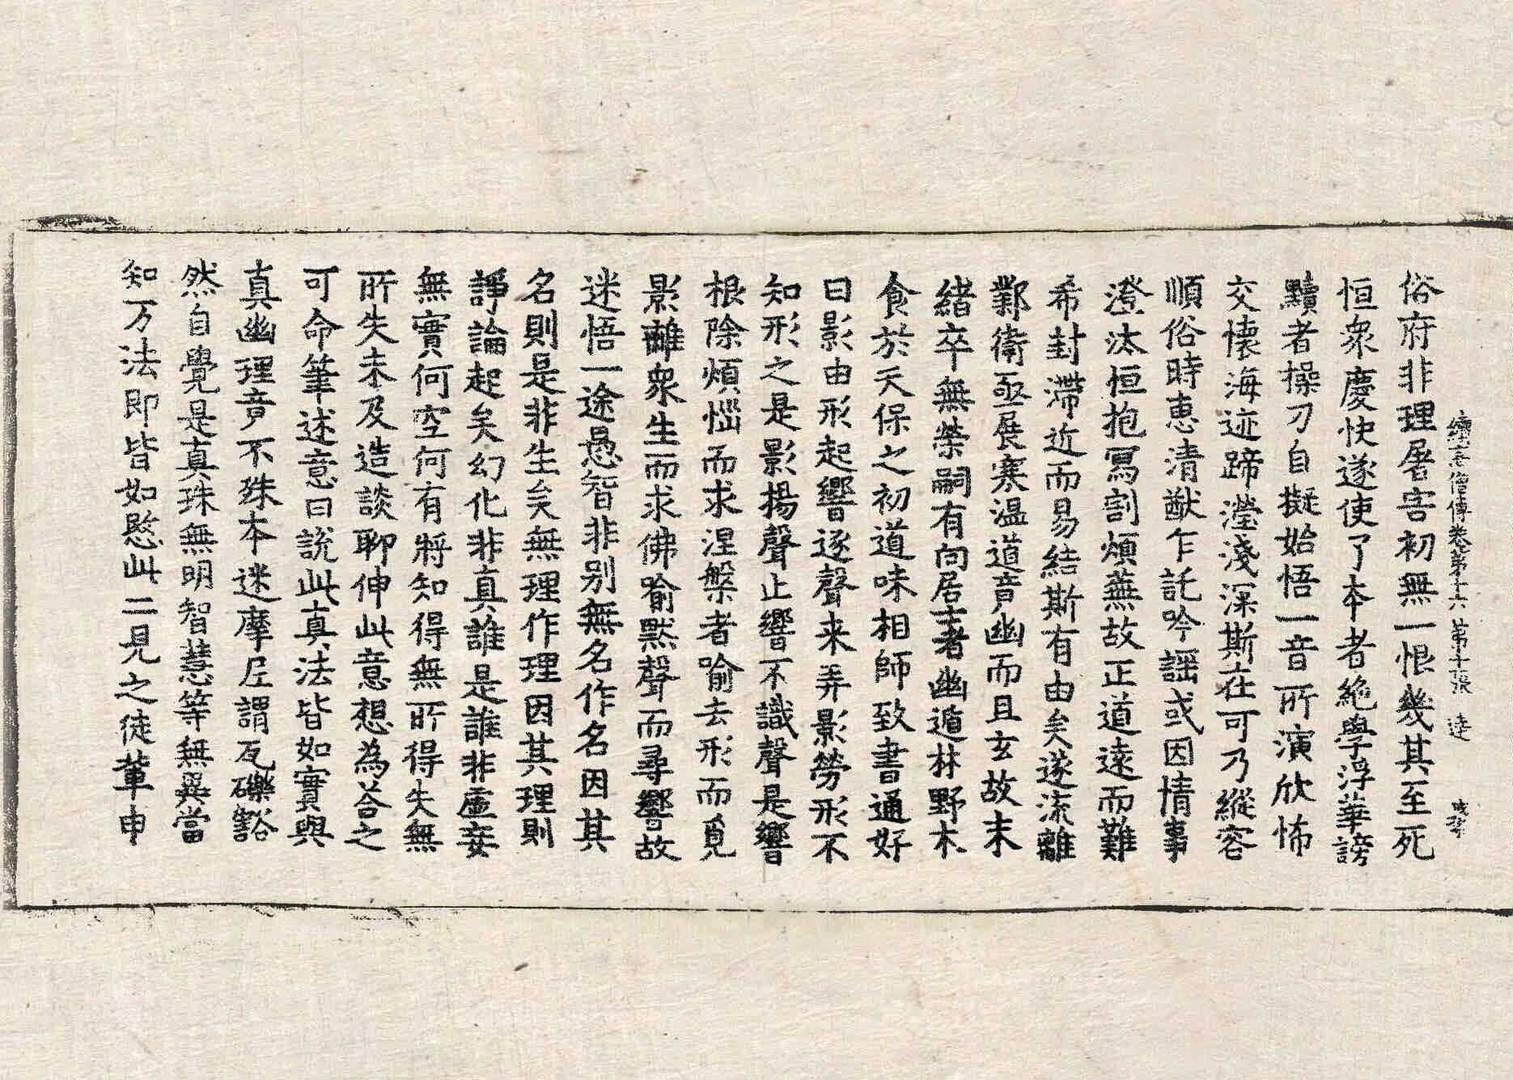 續高僧傳卷第十六 第十張 逵
俗府非理屠害初無一恨幾其至死
恒衆慶快遂使了本者絶學浮華謗
黷者操刀自擬始悟一音所演欣怖
交懷海迹蹄瀅淺深斯在可乃縱容
順俗時惠清猷乍託吟謡或因情事
澄汰恒抱冩割煩蕪故正道遠而難
希封滯近而易結斯有由矣遂流離
鄴衛亟展寒温道竟幽而且玄故末
緒卒無榮嗣有向居士者幽遁林野木
食於天保之初道味相師致書通好
曰影由形起響逐聲来弄影勞形不
知形之是影揚聲止響不識聲是響
根除煩惱而求涅槃者喻去形而覓
影離衆生而求佛喻黙聲而尋響故
迷悟一途愚智非别無名作名因其
名則是非生矣無理作理因其理則
諍論起矣幻化非真誰是誰非虚妄
無實何空何有將知得無所得失無
所失未及造談聊伸此意想為荅之
可命筆述意曰説此真法皆如實與
真幽理竟不殊本迷摩尼謂瓦礫豁
然自覺是真珠無明智慧等無異當
知万法即皆如愍此二見之徒輩申